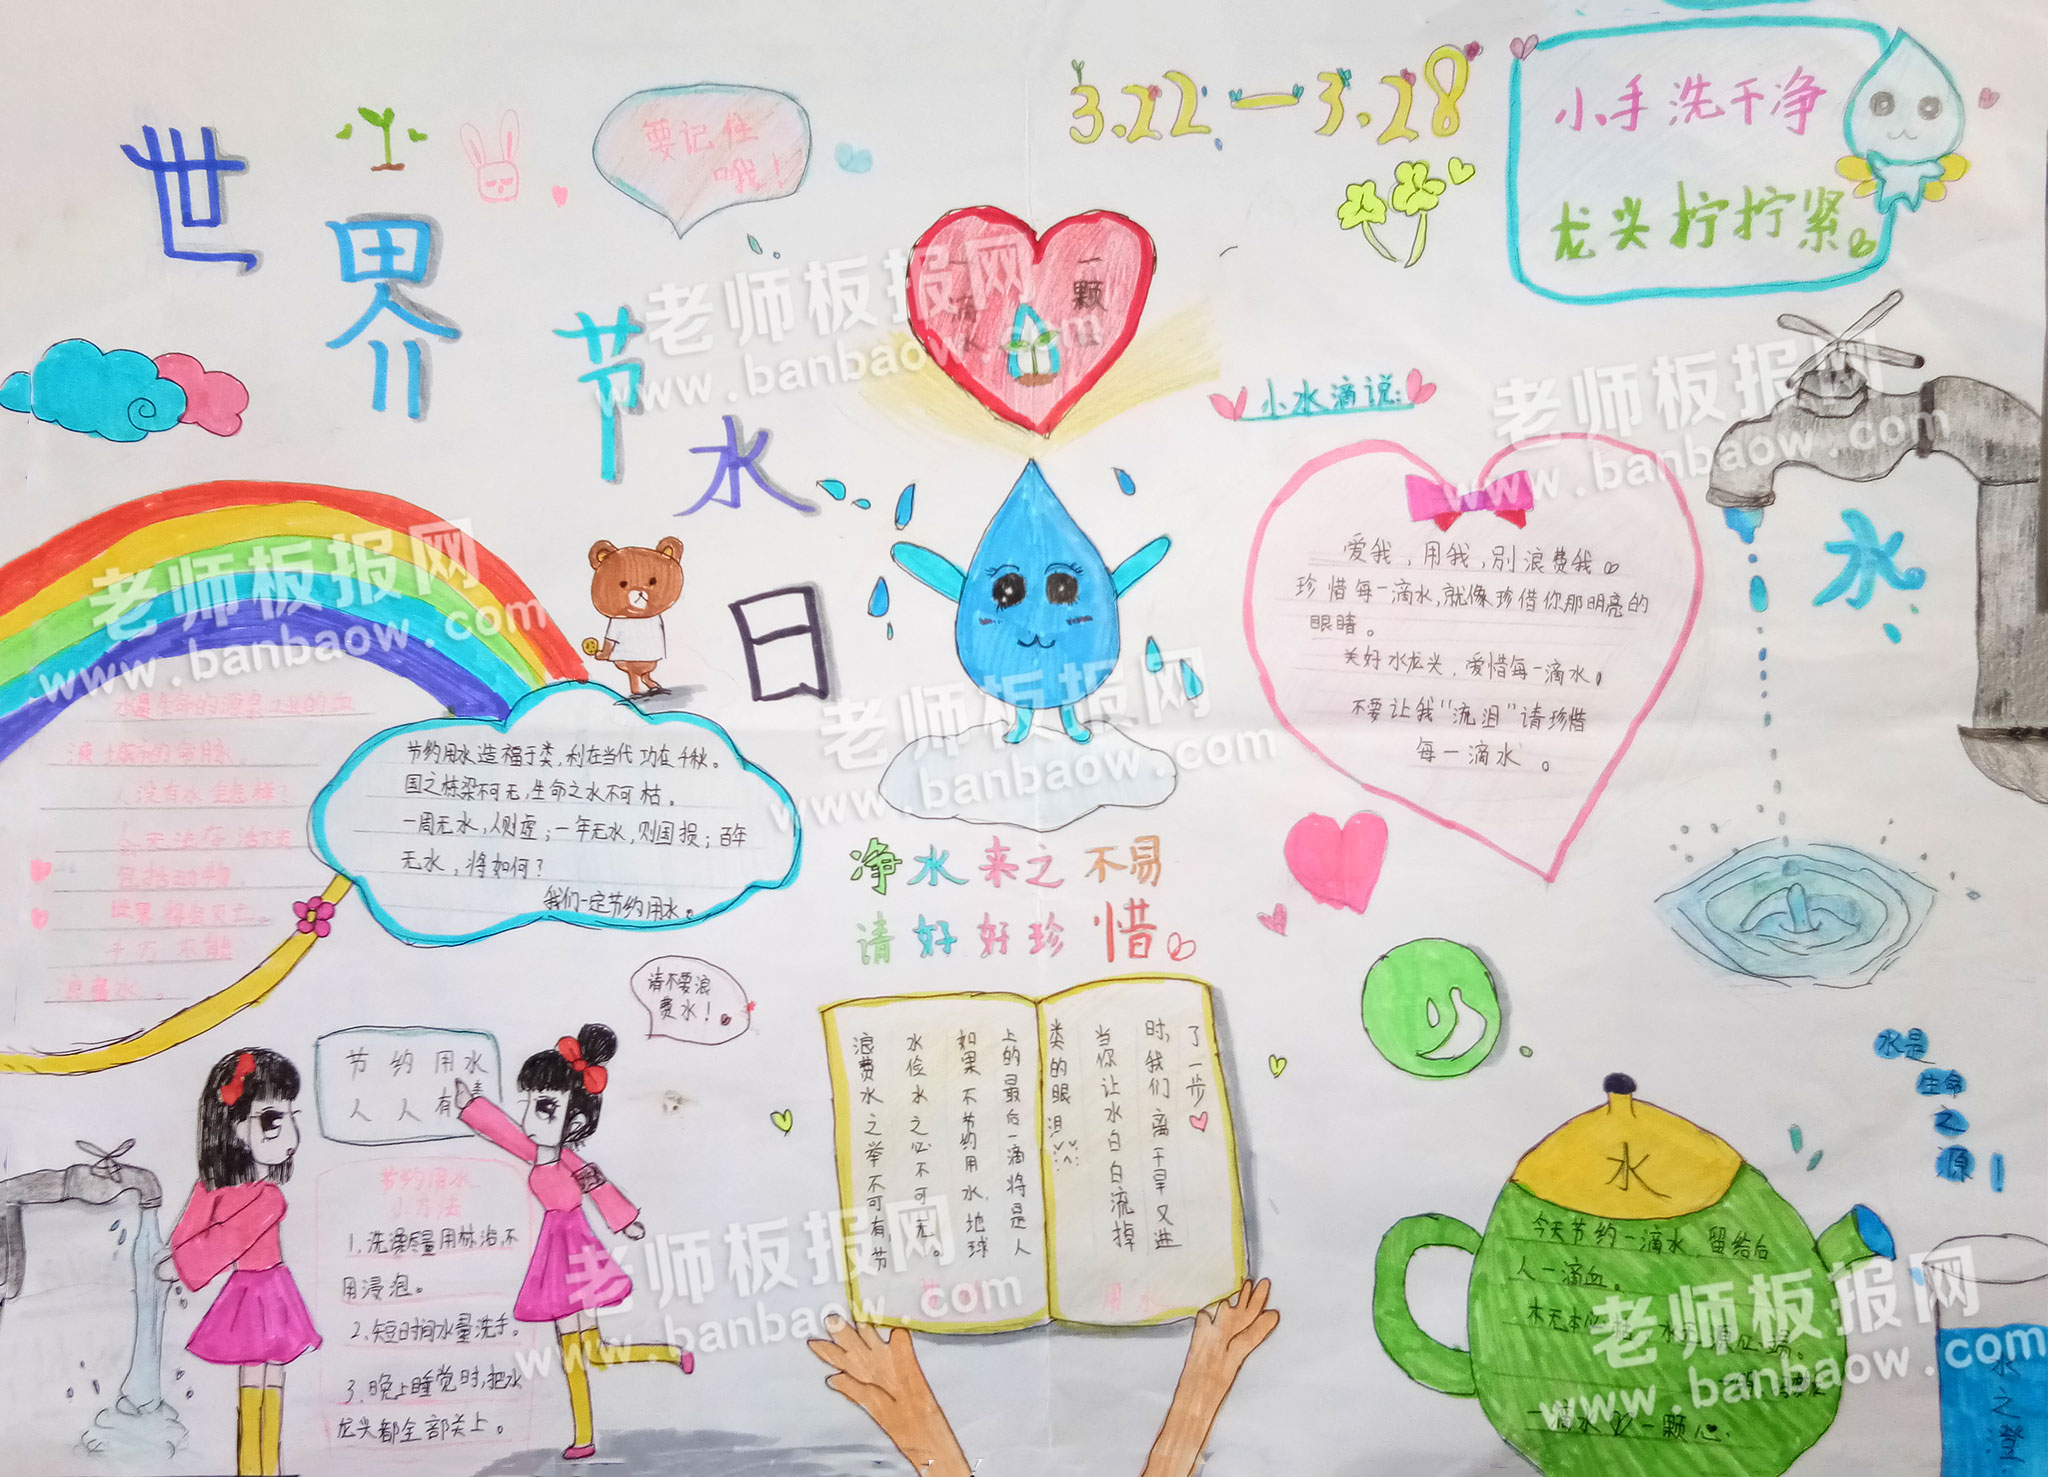 世界节水日
要记住
哦！
3.22—3.28
小手洗干净
龙头拧拧紧。
一滴水
一颗
小水滴说：
爱我，用我，别浪费我。
珍惜每一滴水，就像珍借你那明亮的
眼睛。
关好水龙头，爱惜每一滴水。
不要让我“流泪”请珍惜
每一滴水。
水
水是生命的源泉工业的血
人没有水会怎样？
包括动物，
世界将会灭亡。
千万不能
浪费水。
节约用水造福于类，利在当代功在千秋。
国之栋梁不可无，生命之水不可枯。
一周无水，人则虚；一年无水，则国损；百年
无水，将如何？
我们一定节约用水。
净水来之不易
请好好珍惜。
请不要浪
费水！
节约用水
人人有
节约用水
小方法
1.洗澡尽量用淋浴，不
用浸泡。
2.短时间水量洗手。
3.晚上睡觉时，把水
龙头都全部关上。
浪费水之举不可有，节
水俭水之心不可无。
如果不节约用水，地球
上的最后一滴将是人
类的眼泪
当你让水白白流掉
时，我们离干旱又进
了一步
用水
水是
生命
之
源！
水
今天节约一滴水，留给后
人一滴血。
一滴水 一颗心
水之澄
老师板报网
www.banbaow.com
老师板报网
www.banbaow.com
老师板报网
www.banbaow.com
老师板报网
www.banbaow.com
老师板报网
www.banbaow.com
老师板报网
www.banbaow.com